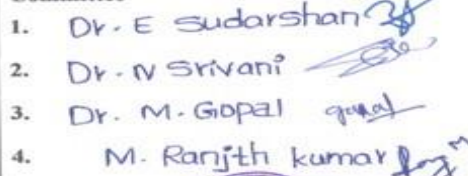 1. Dr. E Sudarshan
2. Dr. N Srivani
3. Dr. M. Gopal
4. M. Ranjth kumar